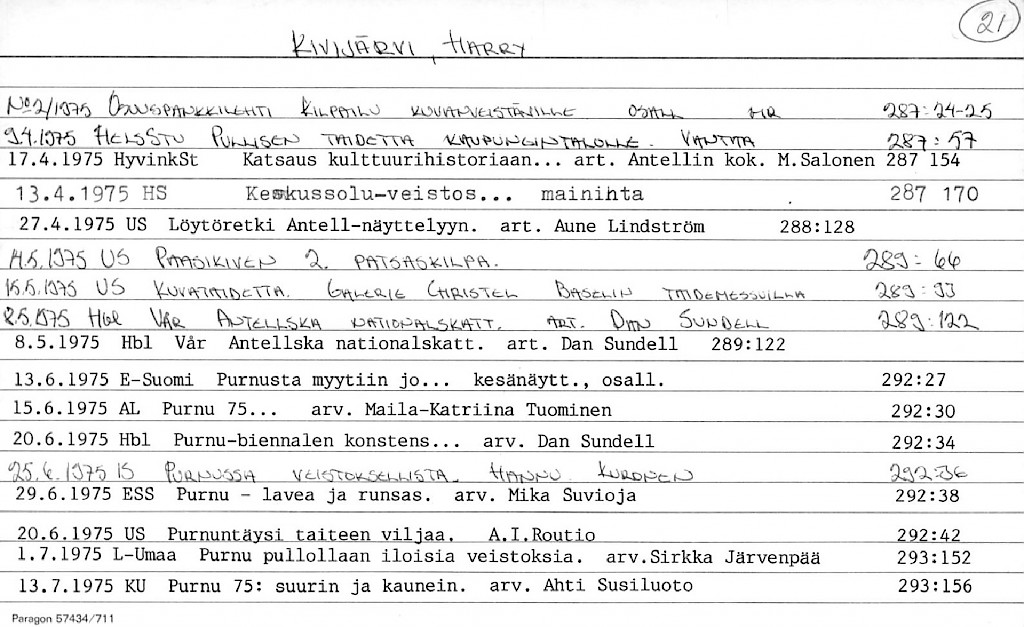 21
KIVIJÄRVI, HARRY
No 2/1975 OSUUSPANKKILEHTI KILPAILU KUVANVEISTÄJILLE OSALL HR 287:24-25
9.4.1975 HELSSTU PULLISEN TAIDETTA KAUPUNGINTALOLLE. VANTAA 287:57
17.4.1975 HyvinkSt Katsaus kulttuurihistoriaan... art. Antellin kok. M.Salonen 287 154
13.4.1975 HS Keskussolu-veistos... mainihta 287 170
27.4.1975 US Löytöretki Antell-näyttelyyn. art. Aune Lindström 288:128
14.5.1975 US PAASIKIVEN 2. PATSASKILPA. 289:66
15.5.1975 US KUVATAIDETTA. GALERIE CHRISTEL BASELIN TAIDEMESSUILLA 289:93
8.5.1975 HBL VÅR ANTELLSKA NATIONALSKATT. ART. DAN SUNDELL 289:122
8.5.1975 Hbl Vår Antellska nationalskatt. art. Dan Sundell 289:122
13.6.1975 E-Suomi Purnusta myytiin jo... kesänäytt., osall. 292:27
15.6.1975 AL Purnu 75... arv. Maila-Katriina Tuominen 292:30
20.6.1975 Hbl Purnu-biennalen konstens... arv. Dan Sundell 292:34
25.6.1975 IS PURNUSSA VEISTOKSELLISTA. HANNU KURONEN 292:36
29.6.1975 ESS Purnu - lavea ja runsas. arv. Mika Suvioja 292:38
20.6.1975 US Purnuntäysi taiteen viljaa. A.I.Routio 292:42
1.7.1975 L-Umaa Purnu pullollaan iloisia veistoksia. arv.Sirkka Järvenpää 293:152
13.7.1975 KU Purnu 75: suurin ja kaunein. arv. Ahti Susiluoto 293:156
Paragon 57434/711